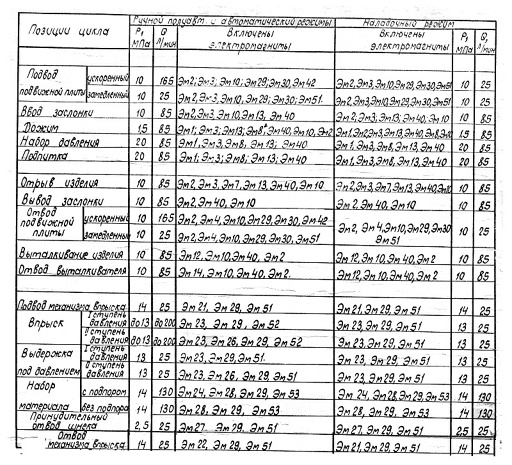 Позиции цикла | Ручной полуавт. и автоматический режимы | Наладочный режим
P, МПа | Q л/мин | Включены электромагниты | Включены электромагниты | P, МПа | Q, л/мин
Подвод подвижной плиты | ускоренный | 10 | 165 | Эм2; Эм3; Эм10; Эм29; Эм30, Эм42 | Эм2, Эм3, Эм10, Эм29, Эм30, Эм51 | 10 | 25
замедленный | 10 | 25 | Эм2; Эм3, Эм10, Эм29; Эм30; Эм51. | Эм2, Эм3, Эм10, Эм29, Эм30, Эм51 | 10 | 25
Ввод заслонки | 10 | 85 | Эм2, Эм3, Эм10, Эм13, Эм40 | Эм2, Эм3, Эм13, Эм40, Эм10 | 10 | 85
Дожим | 1,5 | 85 | Эм1; Эм3; Эм13; Эм8, Эм40, Эм10, Эм2 | Эм1, Эм2, Эм3, Эм13, Эм40, Эм8, Эм10 | 1,5 | 85
Набор давления | 20 | 85 | Эм1, Эм3, Эм8, Эм13, Эм40 | Эм1, Эм3, Эм8, Эм13, Эм40 | 20 | 85
Подпитка | 20 | 85 | Эм1; Эм3; Эм8; Эм13; Эм40 | Эм1, Эм3, Эм8, Эм13, Эм40 | 20 | 85
Отрыв изделия | 10 | 85 | Эм2, Эм3, Эм7, Эм13, Эм40, Эм10 | Эм2, Эм3, Эм7, Эм13, Эм40, Эм10 | 10 | 85
Вывод заслонки | 10 | 85 | Эм2, Эм40, Эм10 | Эм2, Эм40, Эм10 | 10 | 85
Отвод подвижной плиты | ускоренный | 10 | 165 | Эм2, Эм4, Эм10, Эм29, Эм30, Эм42 | Эм2, Эм4, Эм10, Эм29, Эм30 Эм51 | 10 | 25
замедленный | 10 | 25 | Эм2, Эм4, Эм10, Эм29, Эм30, Эм51
Выталкивание изделия | 10 | 85 | Эм12, Эм10, Эм40, Эм2 | Эм12, Эм10, Эм40, Эм2 | 10 | 85
Отвод выталкивателя | 10 | 85 | Эм14, Эм10, Эм40, Эм2. | Эм12, Эм10, Эм40, Эм2 | 10 | 85
Подвод механизма впрыска | 14 | 25 | Эм21, Эм29, Эм51 | Эм21, Эм29, Эм51 | 14 | 25
Впрыск | I ступень давления | до 13 | до 200 | Эм23, Эм29, Эм52 | Эм23, Эм29, Эм51 | 13 | 25
II ступень давления | до 13 | до 200 | Эм23, Эм26, Эм29, Эм52 | Эм23, Эм29, Эм51 | 13 | 25
Выдержка под давлением | I ступень давления | 13 | 25 | Эм23, Эм29, Эм51. | Эм23, Эм29, Эм51 | 13 | 25
II ступень давления | 13 | 25 | Эм23, Эм26, Эм29, Эм51 | Эм23, Эм29, Эм51 | 13 | 25
Набор материала | с подпором | 14 | 130 | Эм24, Эм28, Эм29, Эм53 | Эм24, Эм28, Эм29, Эм53 | 14 | 130
без подпора | 14 | 130 | Эм28, Эм29, Эм53 | Эм28, Эм29, Эм53 | 14 | 130
Принудительный отвод шнека | 2,5 | 25 | Эм27, Эм29, Эм51 | Эм27, Эм29, Эм51 | 2,5 | 25
Отвод механизма впрыска | 14 | 25 | Эм22, Эм29, Эм51 | Эм21, Эм29, Эм51 | 14 | 25